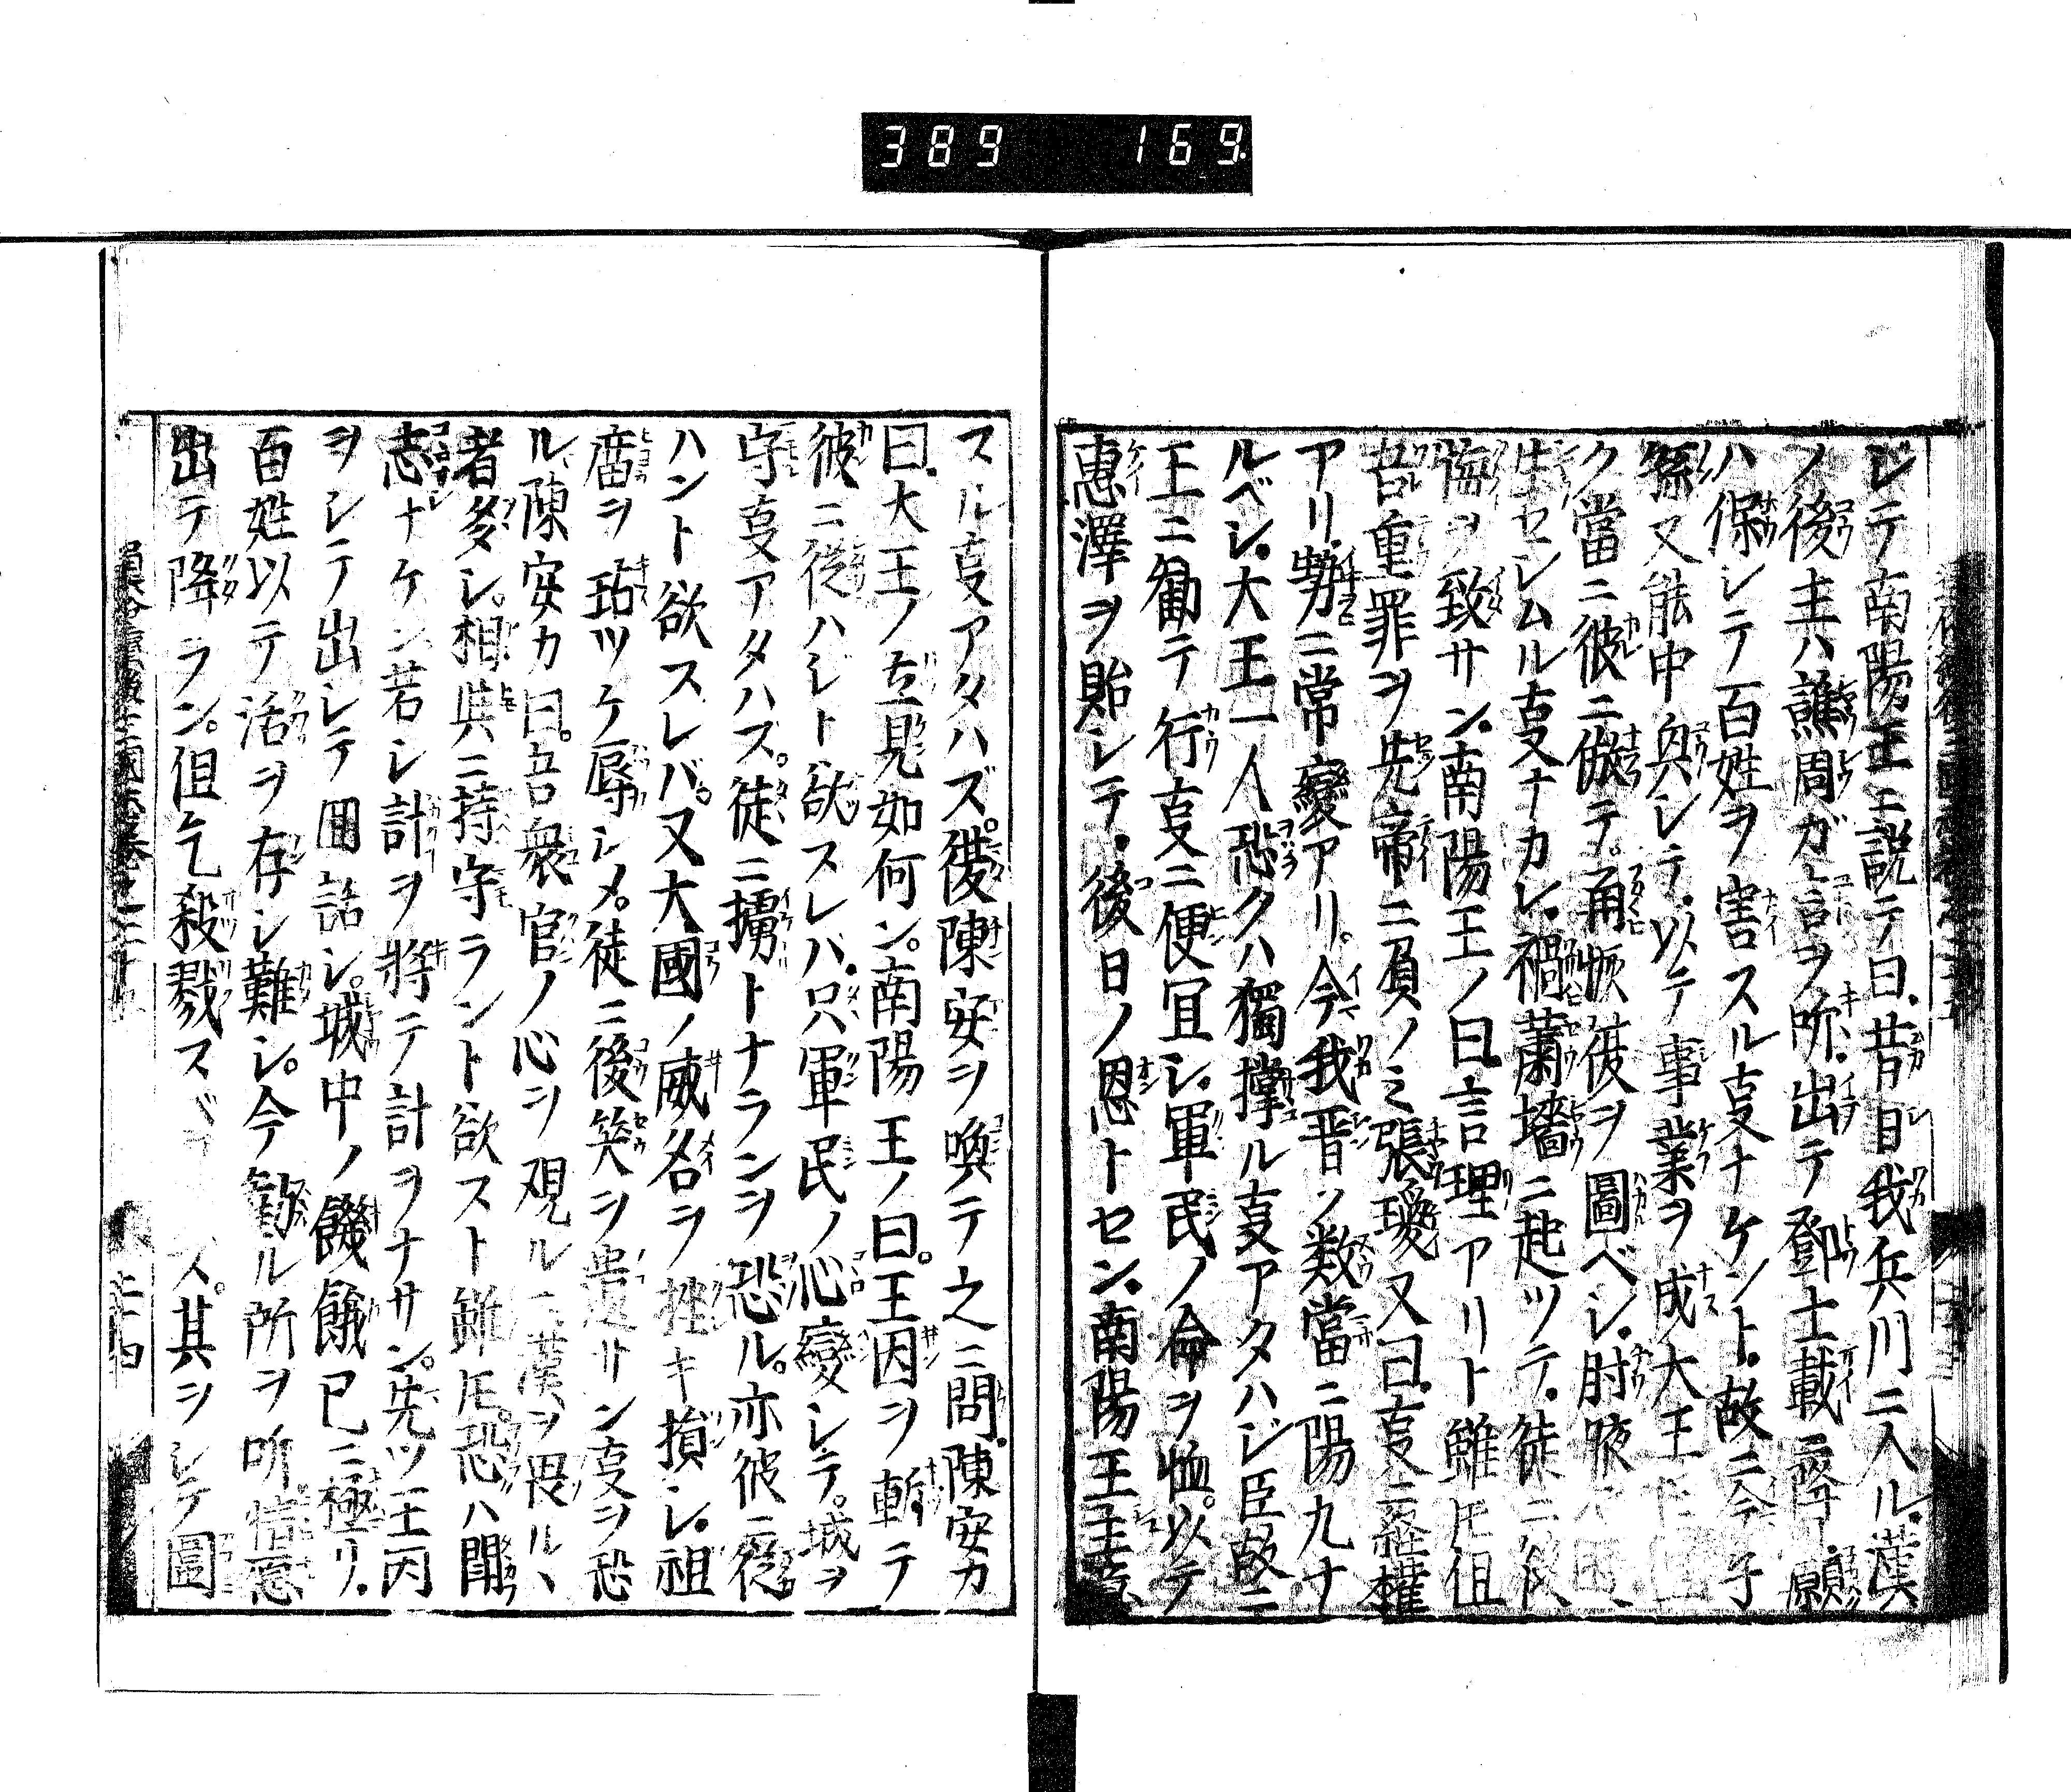 389 169.
ジテ南陽王ニ説テ曰.昔日我兵川ニ入ル.漢
ノ後主ハ譙周ガ言ヲ听.出テ鄧士載ニ降リ.願
ハ保シテ百姓ヲ害スル叓ナケント.故ニ今子
孫又能中興シテ.以テ事業ヲ成大王
ク當ニ彼ニ倣テ.甬 彼ヲ圖ベシ.肘腋
生セシムル叓ナカレ.禍蕭墻ニ起ツテ.徒ニ後
悔ヲ致サン.南陽王ノ曰言理アリト雖𪜈但
吾重罪ヲ先帝ニ負ノミ張璦又曰.叓ニ經權
アリ.勢ニ常變アリ.今我晋ノ数當ニ陽九ナ
ルベシ.大王一人恐クハ獨撑ル叓アタハジ臣故ニ
王ニ勧テ行叓ニ便宜シ.軍民ノ命ヲ恤.以テ
惠澤ヲ貽シテ.後日ノ恩トセン.南陽王
スル叓アタハズ.復陳安ヲ喚テ之ニ問.陳安カ
曰.大王ノ立見如何ン.南陽王ノ曰.王因ヲ斬テ
彼ニ從ハント欲スレバ.只軍民ノ心變シテ.城ヲ
守叓アタハス.徒ニ擄トナランヲ恐ル.亦彼ニ從
ハント欲スレバ.又大國ノ威名ヲ挫キ損シ.祖
廟ヲ玷ツケ辱シメ.徒ニ後笑ヲ遺サン叓ヲ恐
ル陳安カ曰.吾衆官ノ心ヲ覌ルニ漢ヲ畏ルヽ
者多シ.相與ニ持守ラント欲スト雖𪜈.恐ハ鬪
志ナケン若シ計ヲ將テ計ヲナサン.先ツ王因
ヲシテ出シテ回話シ.城中ノ饑餓已ニ極リ.
百姓以テ活ヲ存シ難シ.今勧ル所ヲ听情愿
出テ降ラン.但乞殺戮ス ス.其ヲシテ圖